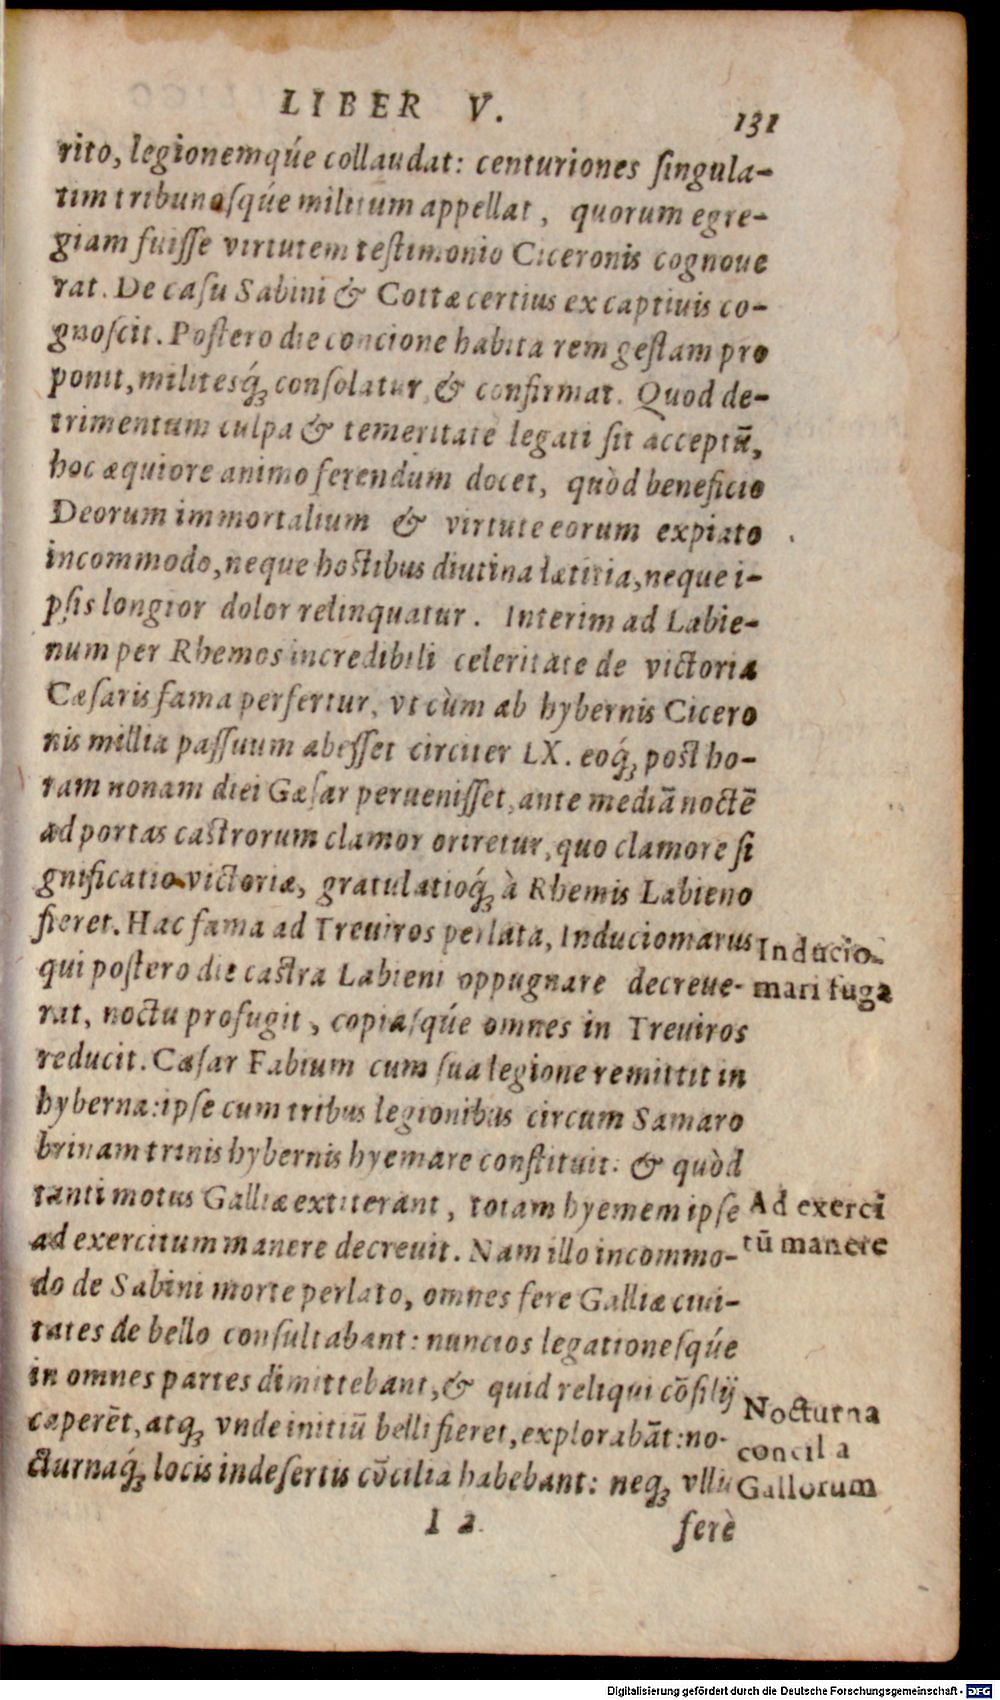 LIBER V. 131
rito, legionemqúe collaudat: centuriones singula-
tim tribunosqúe militum appellat, quorum egre-
giam fuisse virtutem testimonio Ciceronis cognoue
rat. De casu Sabini & Cottæ certius ex captiuis co-
gnoscit. Postero die concione habita rem gestam pro
ponit, militesq́; consolatur & confirmat. Quod de-
trimentum culpa & temeritate legati sit acceptũ,
hoc æquiore animo ferendum docet, quòd beneficio
Deorum immortalium & virtute eorum expiato
incommodo, neque hostibus diutina lætitia, neque i-
psis longior dolor relinquatur. Interim ad Labie-
num per Rhemos incredibili celeritate de victoria
Cæsaris fama perfertur, vt cùm ab hybernis Cicero
nis millia passuum abesset circiter LX. eoq́; post ho-
ram nonam diei Cæsar peruenisset, ante mediã noctẽ
ad portas castrorum clamor oriretur, quo clamore si
gnificatio victoriæ, gratulatioq́; à Rhemis Labieno
fieret. Hac fama ad Treuiros perlata, Induciomarus
qui postero die castra Labieni oppugnare decreue-
rat, noctu profugit, copiasqúe omnes in Treuiros
reducit. Cæsar Fabium cum sua legione remittit in
hyberna: ipse cum tribus legionibus circum Samaro
brinam trinis hybernis hyemare constituit: & quòd
tanti motus Galliæ extiterant, totam hyemem ipse
ad exercitum manere decreuit. Nam illo incommo-
do de Sabini morte perlato, omnes fere Galliæ ciui-
tates de bello consultabant: nuncios legationesqúe
in omnes partes dimittebant, & quid reliqui cõsilij
caperẽt, atq; vnde initiũ belli fieret, explorabãt: no-
cturnaq́; locis in desertis cõcilia habebant: neq; vlli
I 2 ferè
Inducio-
mari fuga
Ad exerci
tũ manere
Nocturna
concilia
Gallorum
Digitalisierung gefördert durch die Deutsche Forschungsgemeinschaft - DFG